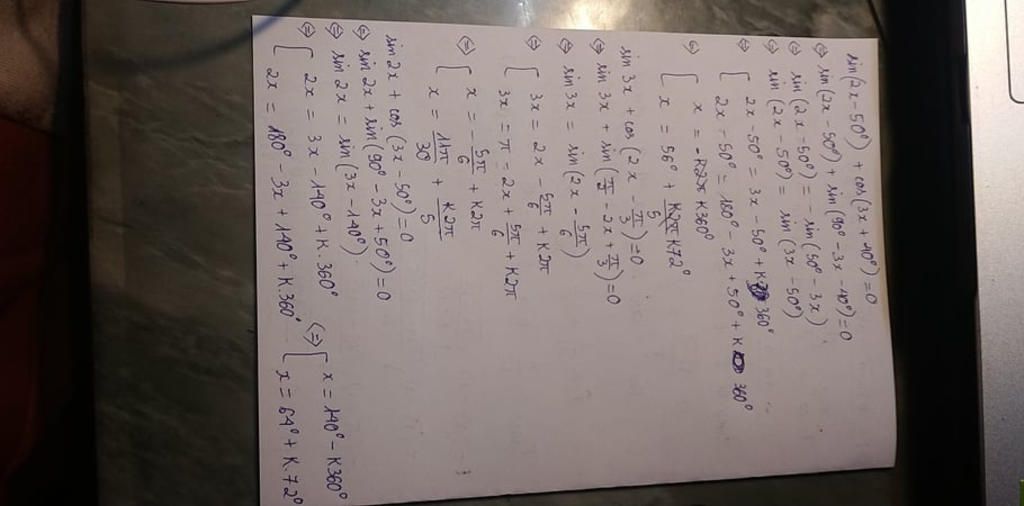 sin(2x-50°) + cos(3x+40°)=0
⇔ sin(2x-50°)+sin(90°-3x-40°)=0
⇔ sin(2x-50°)=-sin(50°-3x)
⇔ sin(2x-50°)=sin(3x-50°)
⇔ [ 2x-50°=3x-50°+K360°
2x-50°=180°-3x+50°+K360°
⇔ [ x=-K360°
x=56°+K72°
sin3x+cos(2x-π/3)=0
⇔ sin3x+sin(π/2-2x+π/3)=0
⇔ sin3x=sin(2x-5π/6)
⇔ [ 3x=2x-5π/6+K2π
3x=π-2x+5π/6+K2π
⇔ [ x=-5π/6+K2π
x=11π/30+K2π/5
sin2x+cos(3x-50°)=0
⇔ sin2x+sin(90°-3x+50°)=0
⇔ sin2x=sin(3x-140°)
⇔ [ 2x=3x-140°+K.360° ⇔ [ x=140°-K360°
2x=180°-3x+140°+K360° x=64°+K.72°